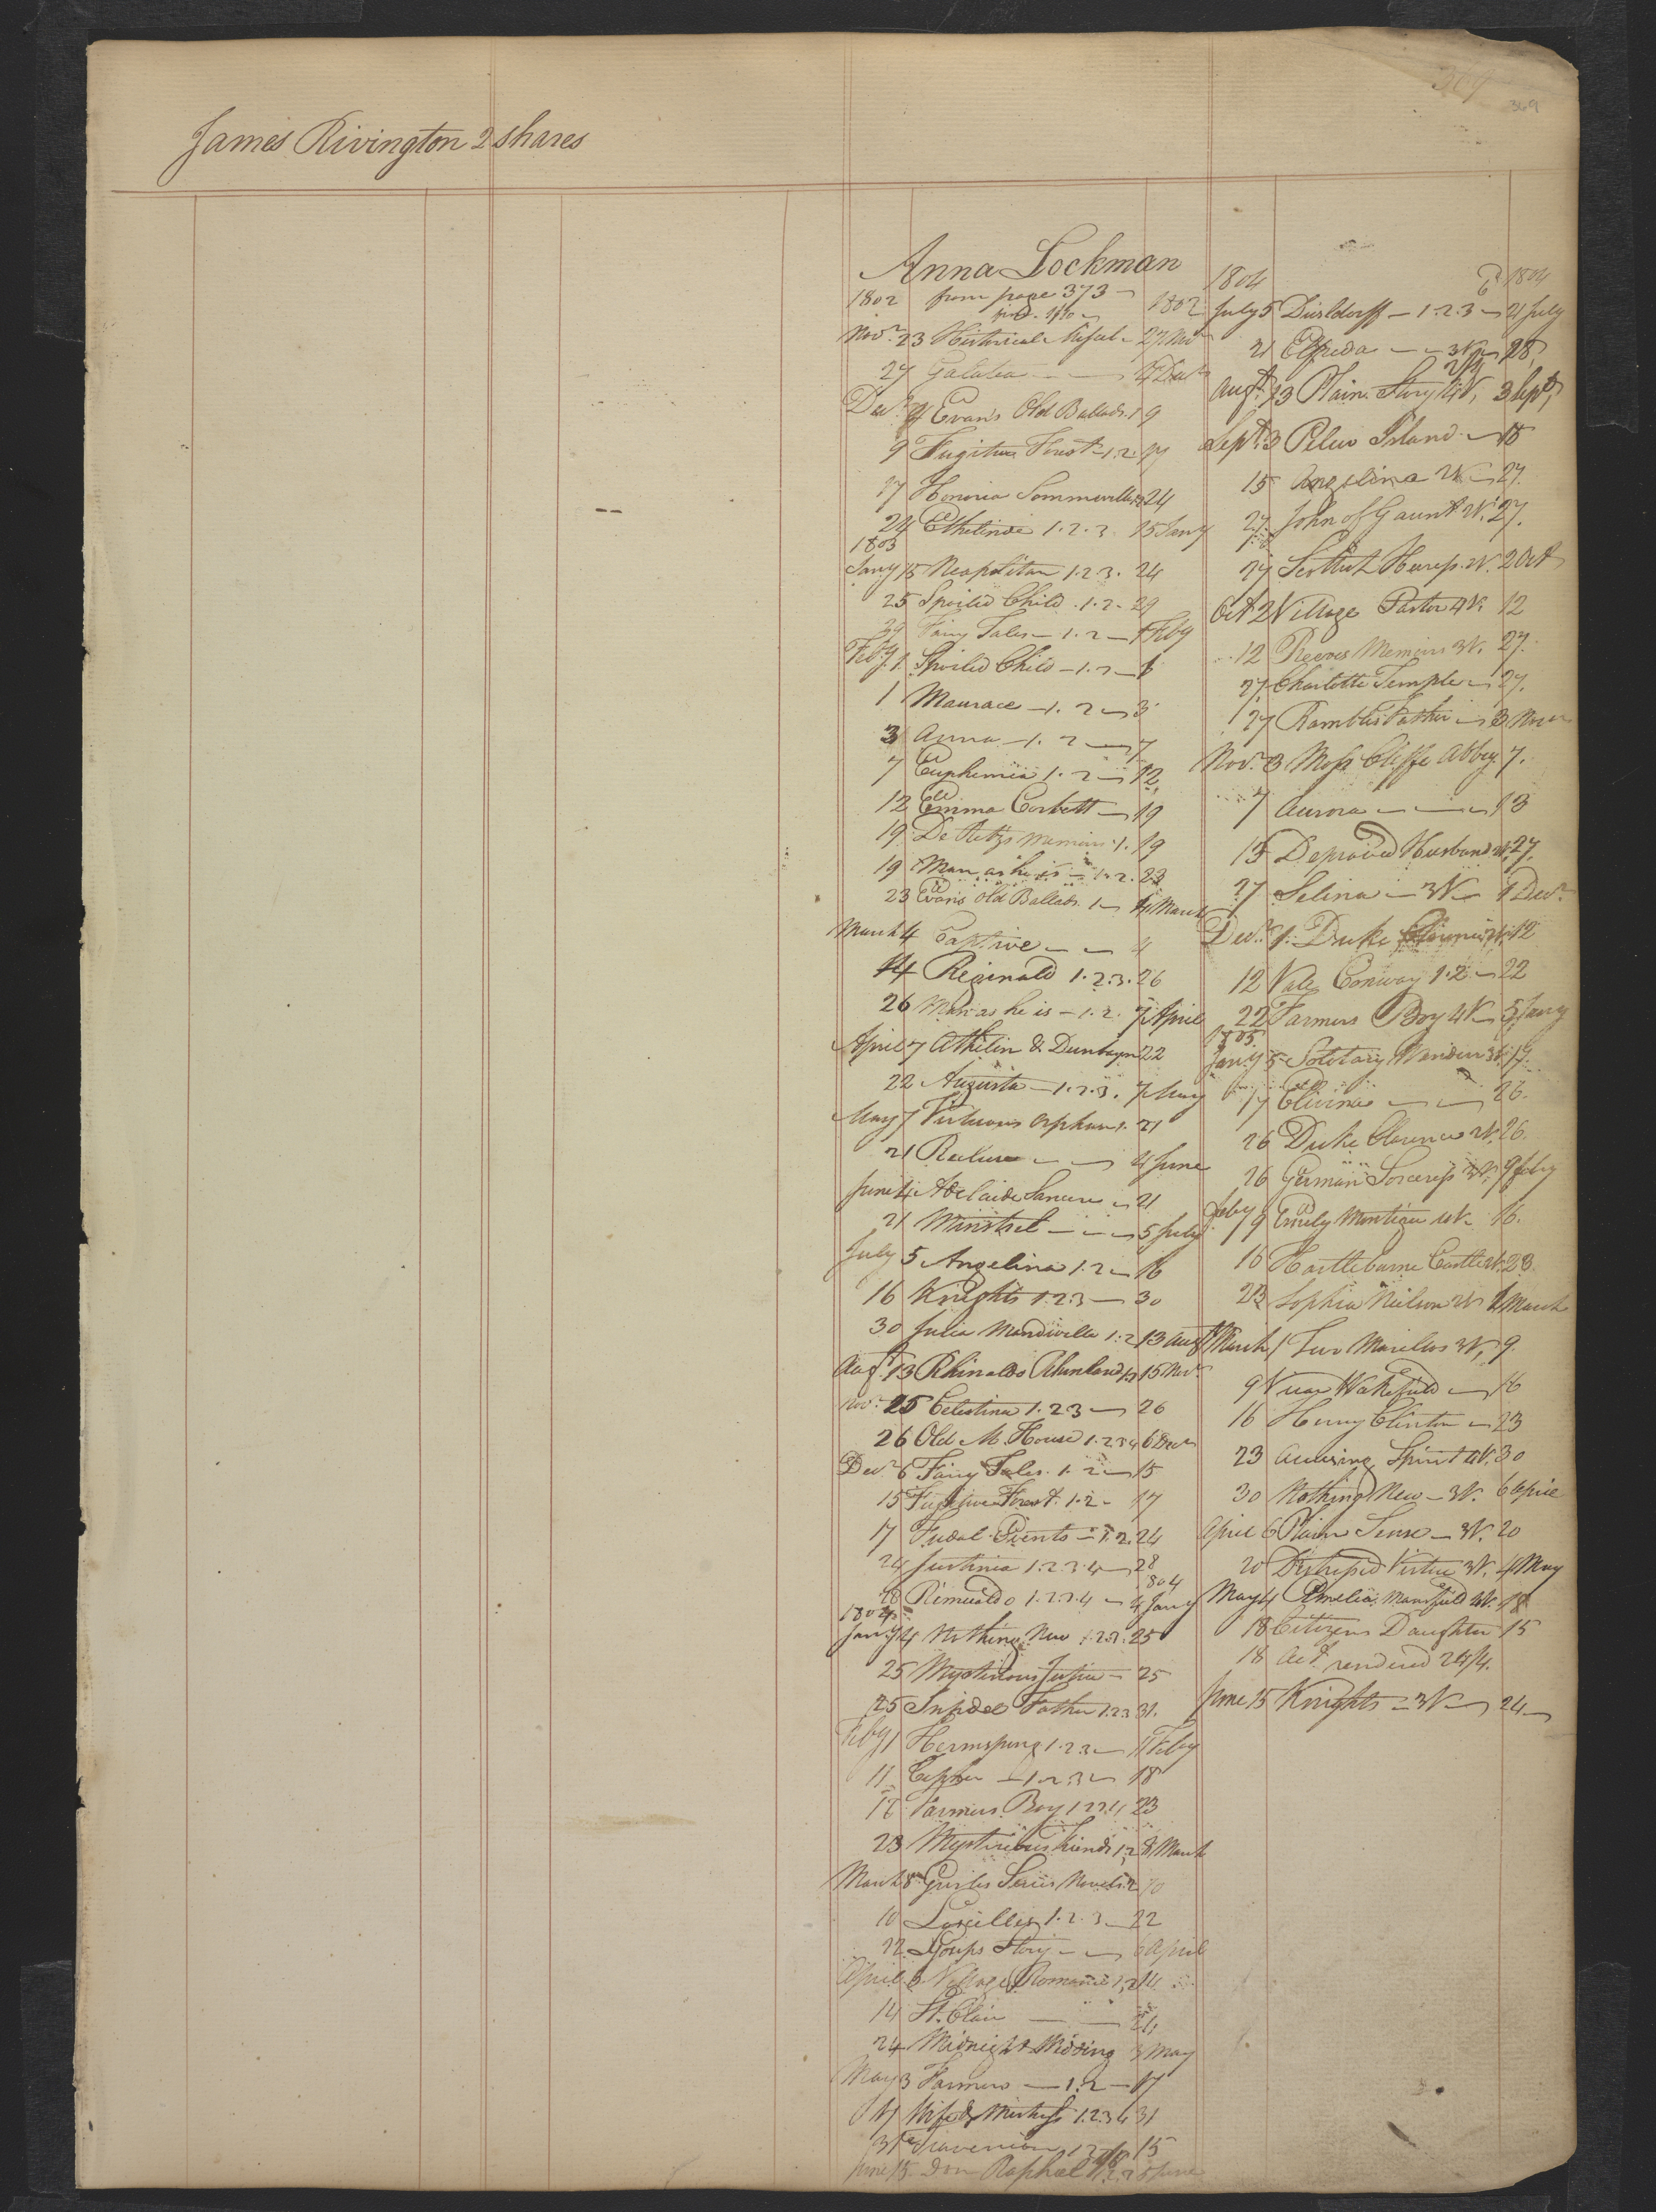 369
James Rivington 2 shares
Anna Lockman
1802 from page 373 1802
Novr 23 Historical 27 Novr
27 Galatea 4 Decr
Decr 4 Evans Old Ballads. 1 9
9 Fugitive Forest 1.2 17
17 Honoria Sommerville 24
24 Ethelinde 1.2.3. 15 Jany
1803
Jany 15 Neapolitan 1.2.3. 24
25 Spoiled Child. 1.2. 29
29 Fairy Tales 1.2 1 Feby
Feby 1 Spoiled Child 1.2 1
1 Maurace 1.2 3
3 Anna 1.2 7
7 Euphemia 1.2 12
12 Emma Corbett 19
19 De Retzs memoirs 1. 19
19 Man as he is 1.2. 23
23 Evans Old Ballads. 1 4 March
March 4 Captive 4
14 Reginald 1.2.3. 26
26 Man as he is 1.2. 7 April
April 7 Athelin & Dunbayn 22
22 Augusta 1.2.3. 7 May
May 7 Virtuous Orphan 1. 21
21 Recluse 4 June
June 4 Adelaide Sancere 21
21 Minstrel 5 July
July 5 Angelina 1.2 16
16 Knights 1.2.3 30
30 Julia Mandiville 1.2 13 Augt
Augt 13 Rhinaldo 15 Novr
Novr 25 Celestina 1.2.3 26
26 Old M. House 1.2.3.4 6 Decr
Decr 6 Fairy Tales. 1.2 15
15 Fugitive Forest. 1.2 17
17 Fudal Events 1.2. 24
24 Justinia 1.2.3.4 28
28 Rimualdo 1.2.3.4 4 Jany 1804
1804
Jany 4 Nothing New 1.2.3. 25
25 Mysterious Justice 25
25 Infidel Father 1.2.3 31.
Feby 1 Hermsprong 1.2.3 11 Feby
11 1.2.3 18
18 Farmers Boy 1.2.3.4 23
23 Mysterious Friends 1.2 8 March
March 8 Novels 10
10 1.2.3 22
22 Story 6 April
April 6 Village Romance 1,2 14
14 St. Clair 24
24 Midnight Wedding 3 May
May 3 Farmers 1.2 17
17 Wife & Mistress 1.2.3.4 31
31 15
June 15 Don Raphael
1804 1804
July 5 Dusldorff 1.2.3 21 July
21 Elfrida 3V 28
Augt 13 Plain Story 4V, 3 Sept
Sept 3 Pelew Island 15
15 Angelina 2V 27.
27 John of Gaunt 2V. 27.
27 Scottish Heiress. 2V. 2 Oct
Oct 2 Village Pastor 4V. 12
12 Reeves Memoirs 3V. 27.
27 Charlotte Temple 27.
27 Rambles Father 3 Novr
Novr 3 Moss Cliffe Abbey 7.
7 Aurora 13
13 Depraved Husband 2V. 27.
27 Selina 3V 1 Decr
Decr 1 Duke Clarence 2V. 12
12 Vale Conway 1.2 22
22 Farmers Boy 4V 5 Jany
1805
Jany 5 Solotary Wander 3V. 17
17 Elvina 26.
26 Duke Clarence 2V. 26.
26 German Sorceress 3V. 9 Feby
Feby 9 Emily Montigue 4V 16.
16 Hartlebourne Castle 2V. 23.
23 Sophia Neilson 2V 1 March
March 1 Two Marillos 3V, 9.
9 Vicar Wakefield 16
16 Henry Clinton 23
23 Avenging Spirit 4V. 30
30 Nothing New 3V. 6 April
April 6 Plain Sense 3V. 20
20 Distressed Virtue 3V. 4 May
May 4 Amelia Mansfield 4V. 18
18 Citizens Daughter 15
18 acct rendered 24/4.
June 15 Knights 3V 24